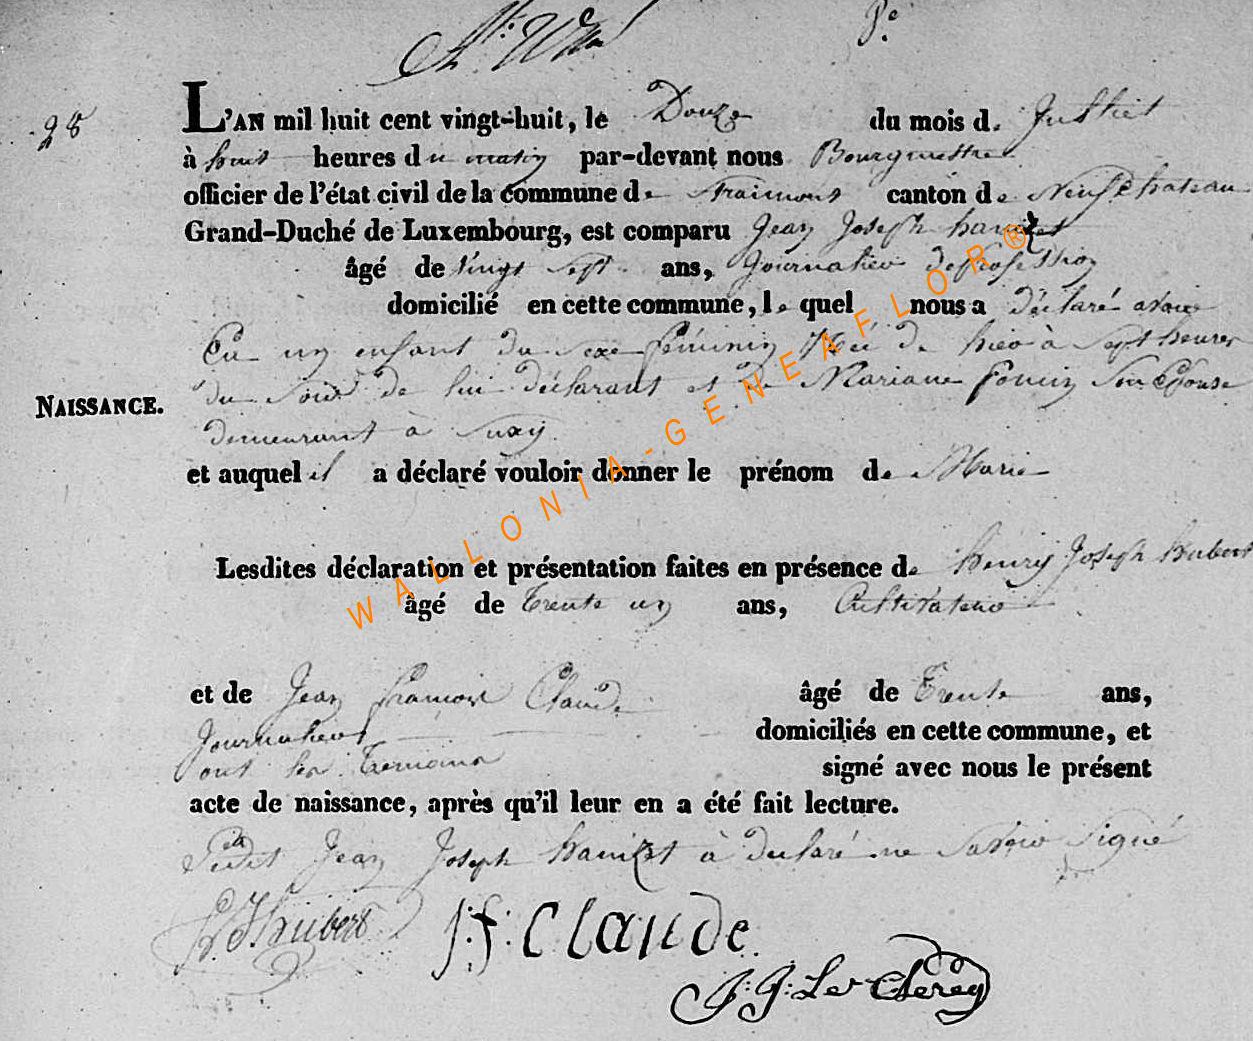 28
L'AN mil huit cent vingt-huit, le Douze du mois d. Juillet
à huit heures du matin par-devant nous Bourgmestre
officier de l'état civil de la commune de Straimont canton de Neufchateau
Grand-Duché de Luxembourg, est comparu Jean Joseph
âgé de vingt sept ans, Journalier de profession
domicilié en cette commune, lequel nous a déclaré avoir
Eu un enfant du sexe féminin Née de hier à sept heures
du soir de lui déclarant et de Mariane son Epouse
demeurant à Suxy
NAISSANCE.
et auquel il a déclaré vouloir donner le prénom de Marie
Lesdites déclaration et présentation faites en présence de henry Joseph hubert
âgé de Trente un ans, Cultivateur
et de Jean françois Claude âgé de Trente ans,
Journalier domiciliés en cette commune, et
ont les Temoins signé avec nous le présent
acte de naissance, après qu'il leur en a été fait lecture.
Jean Joseph à declaré ne savoir signé
h. J. hubert
J: f: Claude
J: J: Le Clerey
WALLONIA-GENEAFLOR®